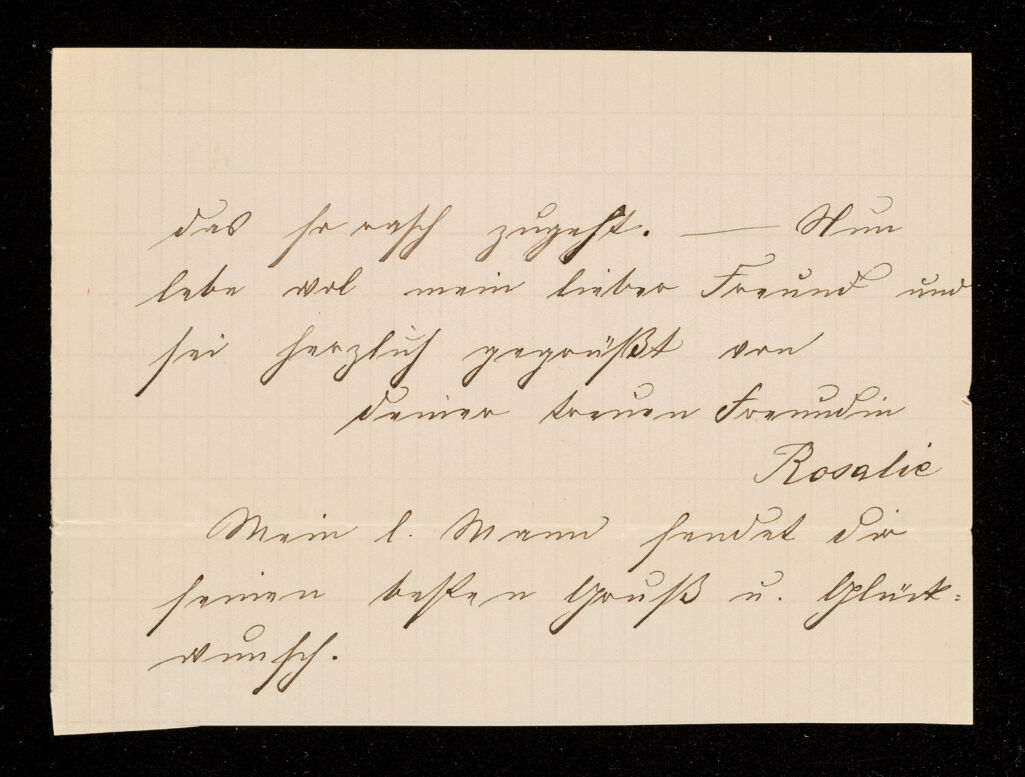 das so rasch zugeht. — Nun
lebe wol mein lieber Freund und
sei herzlich gegrüßt von
deiner treuen Freundin
Rosalie
Mein l. Mann sendet dir
seinen besten Gruß u. Glück=
wunsch.